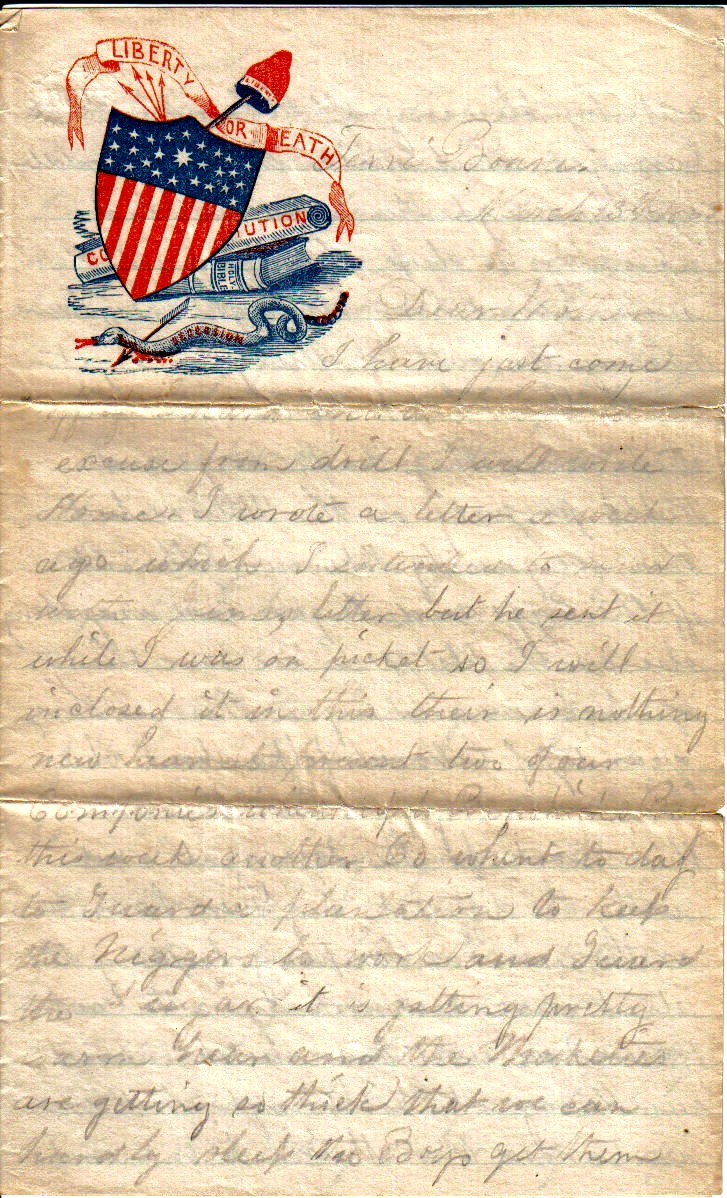 LIBERTY
OR DEATH
CO TUTION
HOLY BIBLE
SECESSION
Terre Boan
March 13
Dear
I have just come
excuse from drill I will write
Home. I wrote a letter a week
ago which I intended to send
with letter but he sent it
while I was on picket so I will
inclosed it in this their is nothing
new hear at present two of our
Companies
this week another Co whent to day
to Guard a plantation to keep
the Niggers to work and Guard
the sugar. it is getting pretty
warm hear and the
are getting so thick that we can
hardly sleep the Boys get them